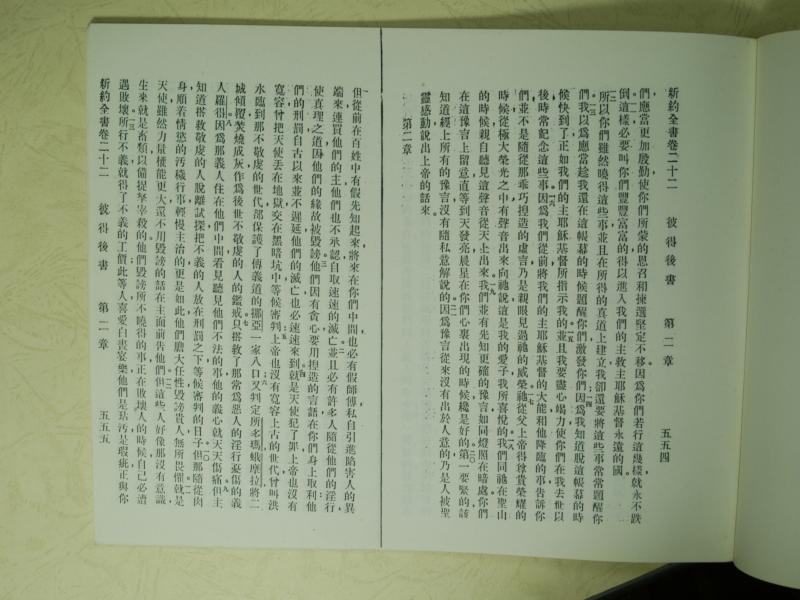 新約全書卷二十二 彼得後書 第二章 五五四
們應當更加殷勤使你們所蒙的恩召和揀選堅定不移因爲你們若行這幾樣就永不跌
倒這樣必要叫你們豐豐富富的得以進入我們的主救主耶穌基督永遠的國
所以你們雖然曉得這些事並且在所得的眞道上建立我卻還要將這些事常常題醒你
們我以爲應當趁我還在這帳幕的時候題醒你們激發你們因爲我知道脫這帳幕的時
候快到了正如我們的主耶穌基督所指示我的並且我要盡心竭力使你們在我去世以
後時常記念這些事因爲我們從前將我們的主耶穌基督的大能和他降臨的事告訴你
們並不是隨從那乖巧捏造的虛言乃是親眼見過祂的威榮祂從父上帝得尊貴榮耀的
時候從極大榮光之中有聲音出來向祂說這是我的愛子我所喜悅的我們同祂在聖山
的時候親自聽見這聲音從天上出來我們並有先知更確的豫言如同燈照在暗處你們
在這豫言上留意直等到天發亮晨星在你們心裏出現的時候纔是好的第一要緊的該
知道經上所有的豫言沒有隨私意解說的因爲豫言從來沒有出於人意的乃是人被聖
靈感動說出上帝的話來
第二章
但從前在百姓中有假先知起來將來在你們中間也必有假師傅私自引進陷害人的異
端來連買他們的主他們也不承認自取速速的滅亡並且必有許多人隨從他們的淫行
使眞理之道因他們的緣故被毀謗他們因有貪心要用捏造的言語在你們身上取利他
們的刑罰自古以來並不遲延他們的滅亡也必速速來到就是天使犯了罪上帝也沒有
寬容曾把天使丟在地獄交在黑暗坑中等候審判上帝也沒有寬容上古的世代曾叫洪
水臨到那不敬虔的世代卻保護了傳義道的挪亞一家八口又判定所多瑪蛾摩拉將二
城傾覆焚燒成灰作爲後世不敬虔的人的鑑戒只搭救了那常爲惡人的淫行憂傷的義
人羅得因爲那義人住在他們中間看見聽見他們不法的事他的義心就天天傷痛但主
知道搭救敬虔的人脫離試探把不義的人放在刑罰之下等候審判的日子但那隨從肉
身順着情慾的汚穢行事輕慢主治的更是如此他們膽大任性毀謗貴人無所畏懼就是
天使雖然力量權能更大還不用毀謗的話在主面前告他們但這些人好像那沒有意識
生來就是畜類以備捉拏宰殺的他們毀謗所不曉得的事正在敗壞人的時候自己必遭
遇敗壞所行不義就得了不義的工價此等人喜愛白晝宴樂他們是玷汚是瑕疵正與你
新約全書卷二十二 彼得後書 第二章 五五五